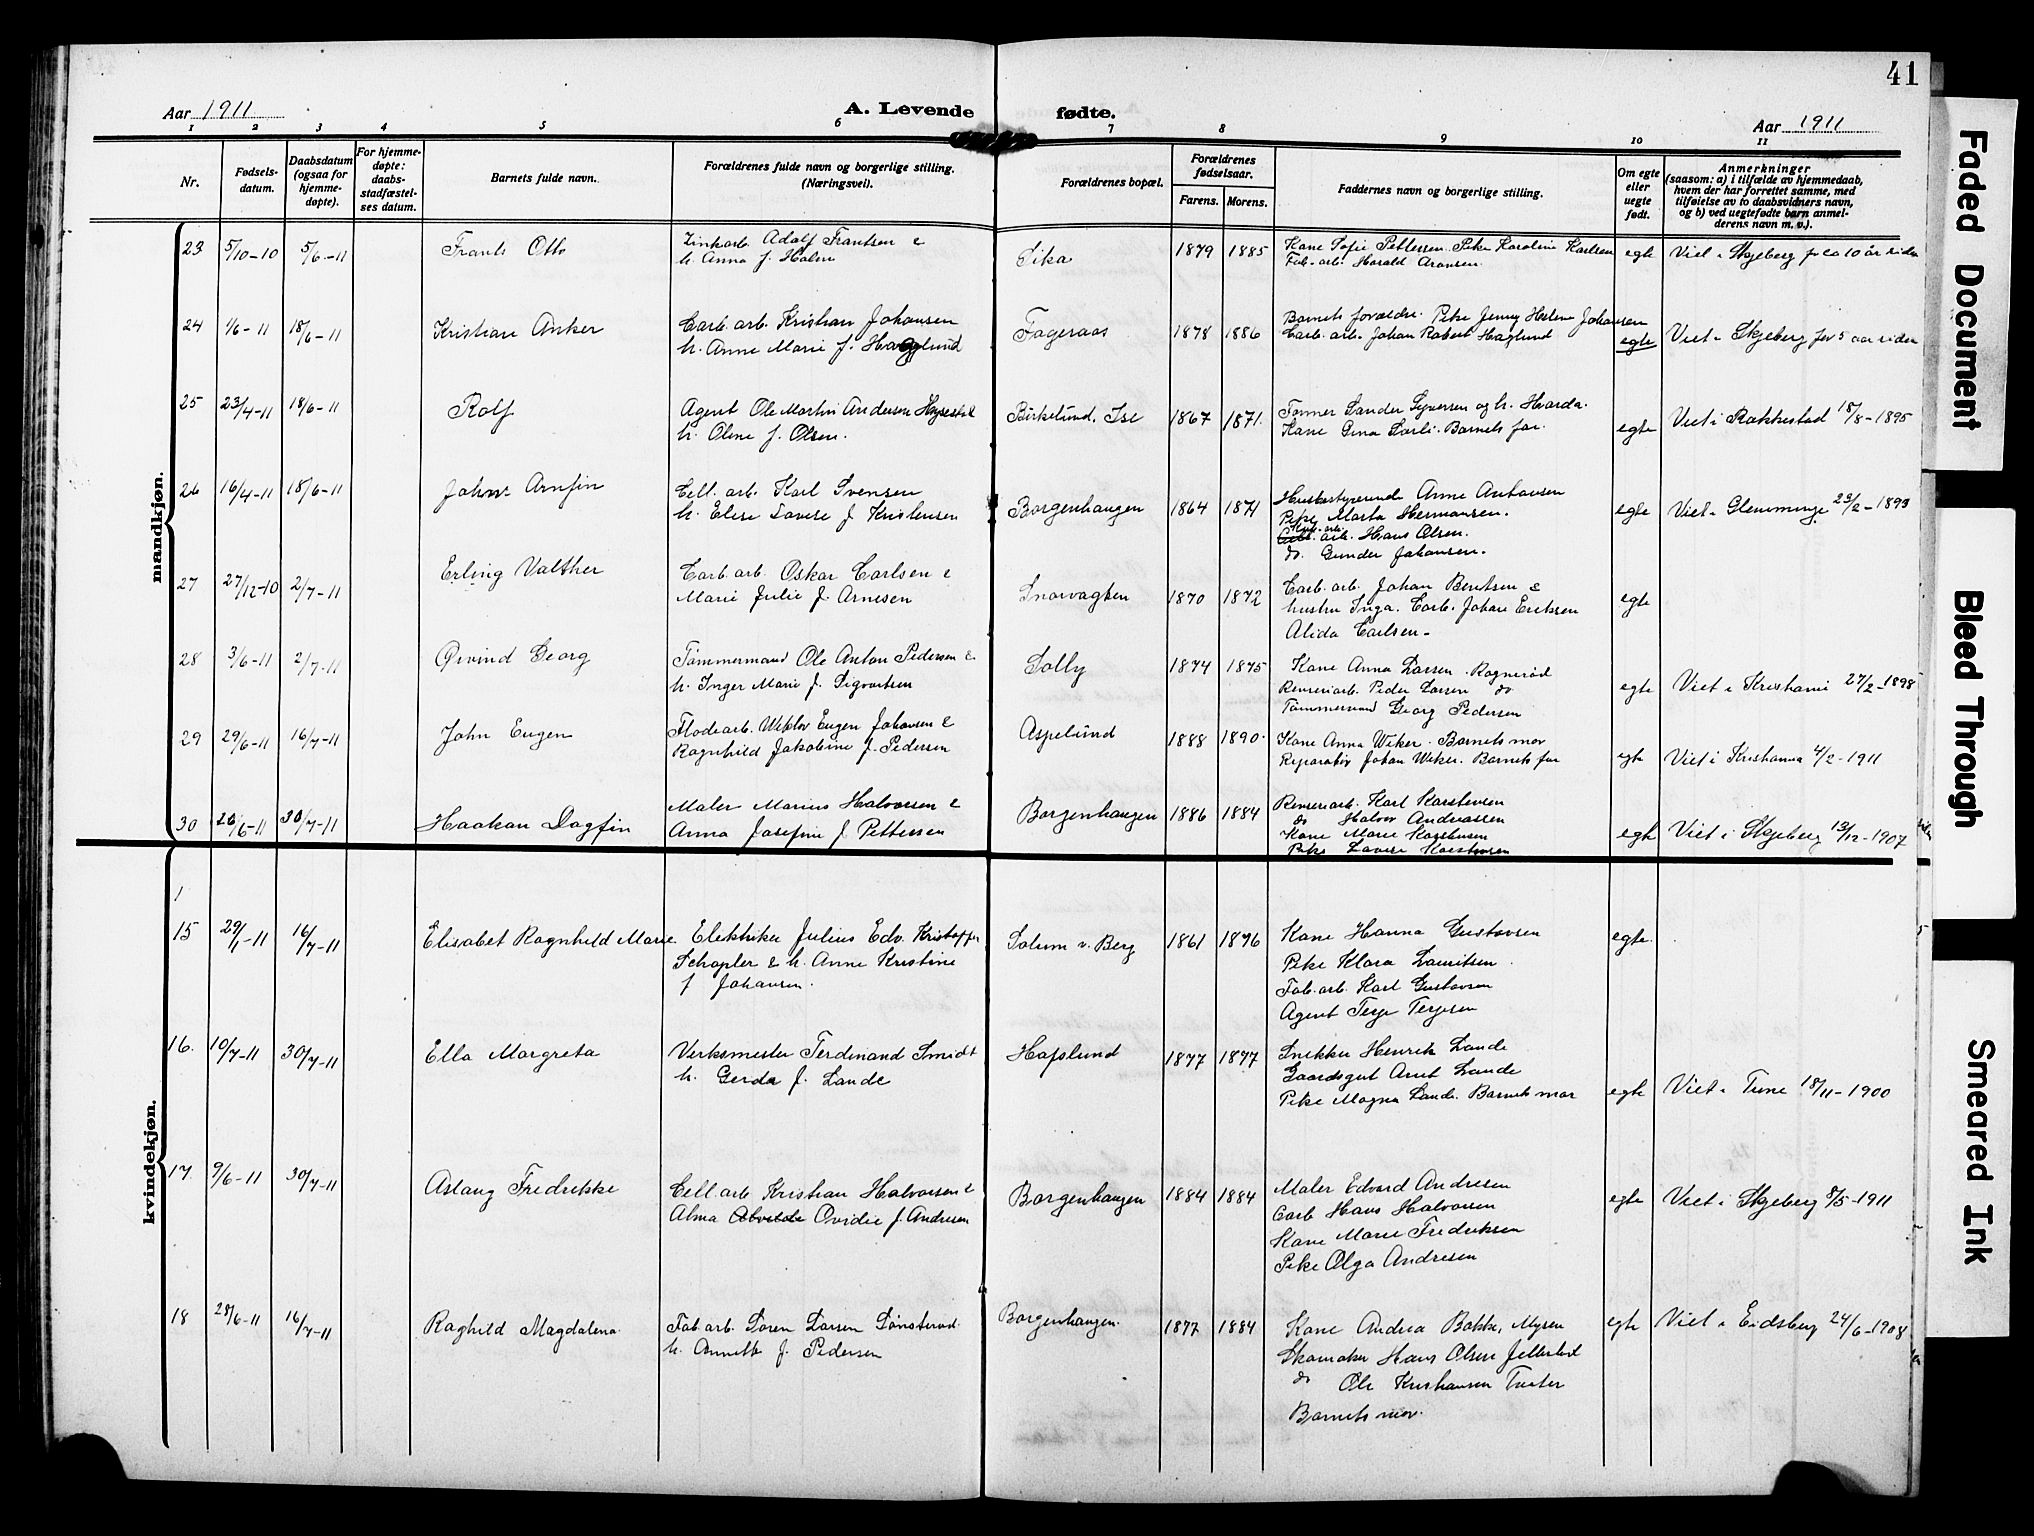 41
Aar 1911
A. Levende fødte.
Aar 1911
1 2 3 4 5 6 7 8 9 10 11
Nr.
Fødsels-
datum.
Daabsdatum
(ogsaa for
hjemme-
døpte).
For hjemme-
døpte:
daabs-
stadfæstel-
ses datum.
Barnets fulde navn.
Forældrenes fulde navn og borgerlige stilling.
(Næringsvei).
Forældrenes bopæl.
Forældrenes
fødselsaar.
Farens. Morens.
Faddernes navn og borgerlige stilling.
Om egte
eller
uegte
født.
Anmerkninger
(saasom: a) i tilfælde av hjemmedaab,
hvem der har forrettet samme, med
tilføielse av to daabsvidners navn,
og b) ved uegtefødte barn anmel-
derens navn m. v.).
mandkjøn.
23 5/10-10 5/6-11 Frants Otto
Zinkarb. Adolf Frantsen &
h. Anna f. Holm
1879 1885
Kone Sofie Pettersen. Pike Karoline Karlsen
Fab. arb. Harald
egte
Viet i Skjeberg for ca 10 år siden
24 1/6-11 18/6-11 Kristian Anker
Carb. arb. Kristian Johansen
h. Anne Marie f. Haglund
Fageraas
1878 1886
Barnets forældre. Pike Jenny Helene Johansen
Carb. arb. Johan Robert Haglund
egte
Viet i Skjeberg for 5 aar siden
25 23/4-11 18/6-11 Rolf
Agent Ole Martin Andersen
h. Oline f. Olsen.
Birkelund. Ise
1867 1871.
Former Sander Syversen og h. Harda.
Kone Gina Sørli. Barnets far.
egte
Viet i Rakkestad 18/8-1895
26 16/4-11 18/6-11 John Arnfin
Cell. arb. Karl Svensen
h. Elise Lovise f. Kristensen
Borgenhaugen
1864 1871
Husbestyrerinde Anne Anthonsen
Pike Marta Hermansen.
arb. Hans Olsen.
do. Gunder Johansen.
egte
Viet i Glemminge 23/2-1893
27 27/12-10 2/7-11 Erling Valther
Carb. arb. Oskar Carlsen &
Marie Julie f. Arnesen
1870 1872
Carb. arb. Johan Bentsen &
hustru Inga. Carb. Johan Eriksen
Alida Carlsen-
egte
28 3/6-11 2/7-11 Øivind Georg
Tømmermand Ole Anton Pedersen &
h. Inger Marie f. Sigvartsen
Solly
1874 1875
Kone Anna Larsen. Rognerød
Renseriarb. Peder Larsen do
Tømmermand Georg Pedersen
egte
Viet i Kristiania 27/2-1898
29 29/6-11 16/7-11 John Eugen
Flodearb. Wiktor Eugen Johansen &
Ragnhild Jakobine f. Pedersen
Aspelund
1888 1890.
Kone Anna Wiker. Barnets mor
Reparatør Johan Wiker. Barnets far
egte
Viet i Kristiania 4/2-1911
30 20/6-11 30/7-11 Haakon Dagfin
Maler Marius Halvorsen &
Anna Josefine f. Pettersen
Borgenhaugen
1886 1884
Renseriarb. Karl Karstensen
do Halvor Andreassen
Kone Marie Karstensen
Pike Lovise Karstensen
egte
Viet i Skjeberg 13/12-1907
kvindekjøn.
1
15 29/1-11 16/7-11 Elisabet Ragnhild Marie
Elektriker Julius Edv. Kristoffer
Schopler & h. Anne Kristine
f Johansen.
Solum v. Berg
1861 1896
Kone Hanna Gustavsen
Pike Klara Lauritsen
Fab. arb. Karl Gustavsen
Agent Terje Terjesen
egte.
16. 10/7-11 30/7-11 Ella Margreta
Verksmester Ferdinand Smidt
h. Gerda f. Lande
Hafslund
1877 1877
Snekker Henrik Lande
Gaardsgut Arnt Lande
Pike Magna Lande. Barnets mor
egte
Viet i Tune 18/11-1900
17. 9/6-11 30/7-11 Aslaug Fredrikke
Cell. arb Kristian Halvorsen &
Alma Ovidie f. Andresen
Borgenhaugen
1884 1884
Maler Edvard Andresen
Carb Hans Halvorsen
Kone Marie Fredriksen
Pike Olga Andresen
egte
Viet i Skjeberg 8/5-1911
18 28/6-11 16/7-11 Raghild Magdalena
Fab. arb. Søren Larsen Lønsterød
h. Annette f. Pedersen
Borgenhaugen.
1877 1884
Kone Andrea Bakke, Mysen
Skomaker Hans Olsen
do Ole Kristiansen
Barnets mor.
egte
Viet i Eidsberg 24/6-1908
Faded Document
Bleed Through
Smeared Ink